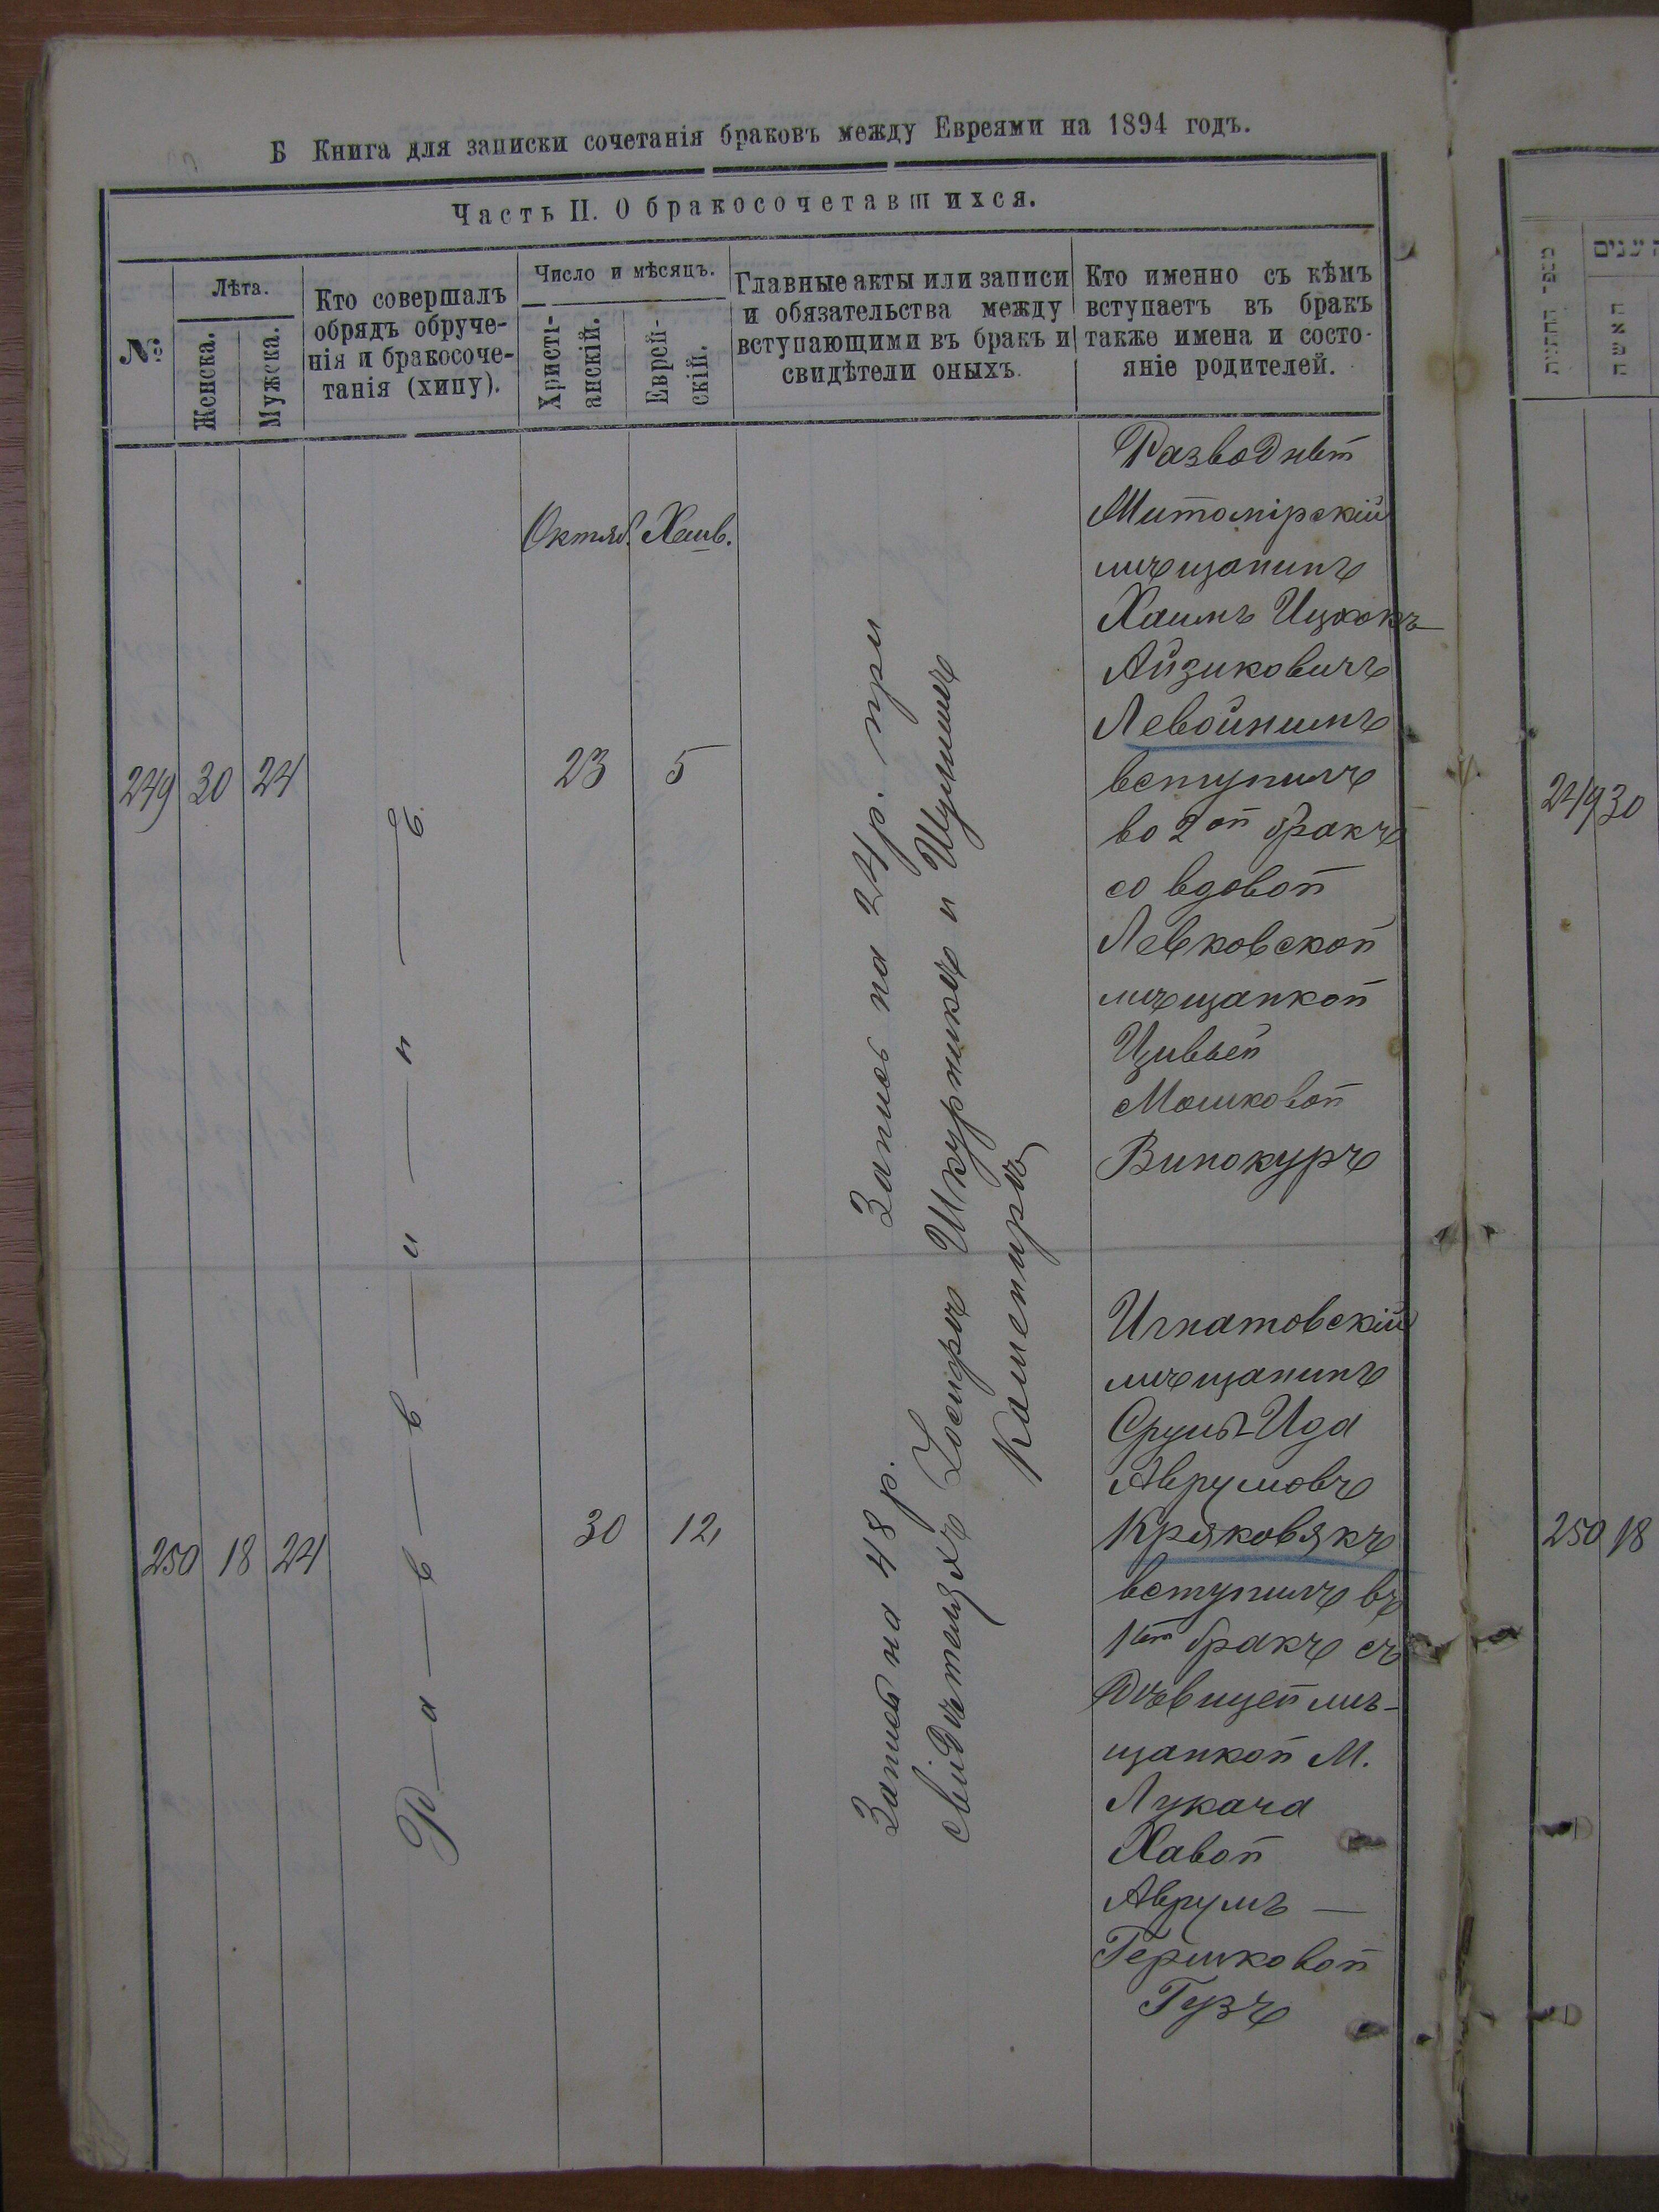 Б Книга для записки сочетанія браковъ между Евреями на 1894 годъ.
Часть II. О бракосочетавшихся.
№
Лѣта.
Женска.
Мужска.
Кто совершалъ
обрядъ обруче-
нія и бракосоче-
танія (хипу).
Число и мѣсяцъ.
Христі-
анскій.
Еврей-
скій.
Главные акты или записи
и обязательства между
вступающими въ бракъ и
свидѣтели оныхъ.
Кто именно съ кѣмъ
вступаетъ въ бракъ
также имена и состо-
яніе родителей.
Октяб. Хешв.
249 30 24
23 5
Запись на 24 р. при
Разводнѣт
Житомірскій
мѣщанинъ
Хаимъ Ицкокъ
Айзиковичъ
Левойнимъ
вступилъ
во 2ой бракъ
со вдовой
Левковской
мѣщанкой
Цивьей
Мошковой
Винокуръ
Р—а—в—в—и—н—ъ.
250 18 24
30 12
Запись на 48 р.
свидѣтеляхъ Шкурникъ и Шулимъ
Игнатовскій
мѣщанинъ
Сруль-Ида
Аврумовъ
Кряковякъ
вступилъ въ
1ый бракъ съ
дѣвицей мѣ-
щанкой М.
Лукача
Хавой
Аврумъ —
Гершковой
Гузъ
סעפר החתונה
האשה
249 30
250 18